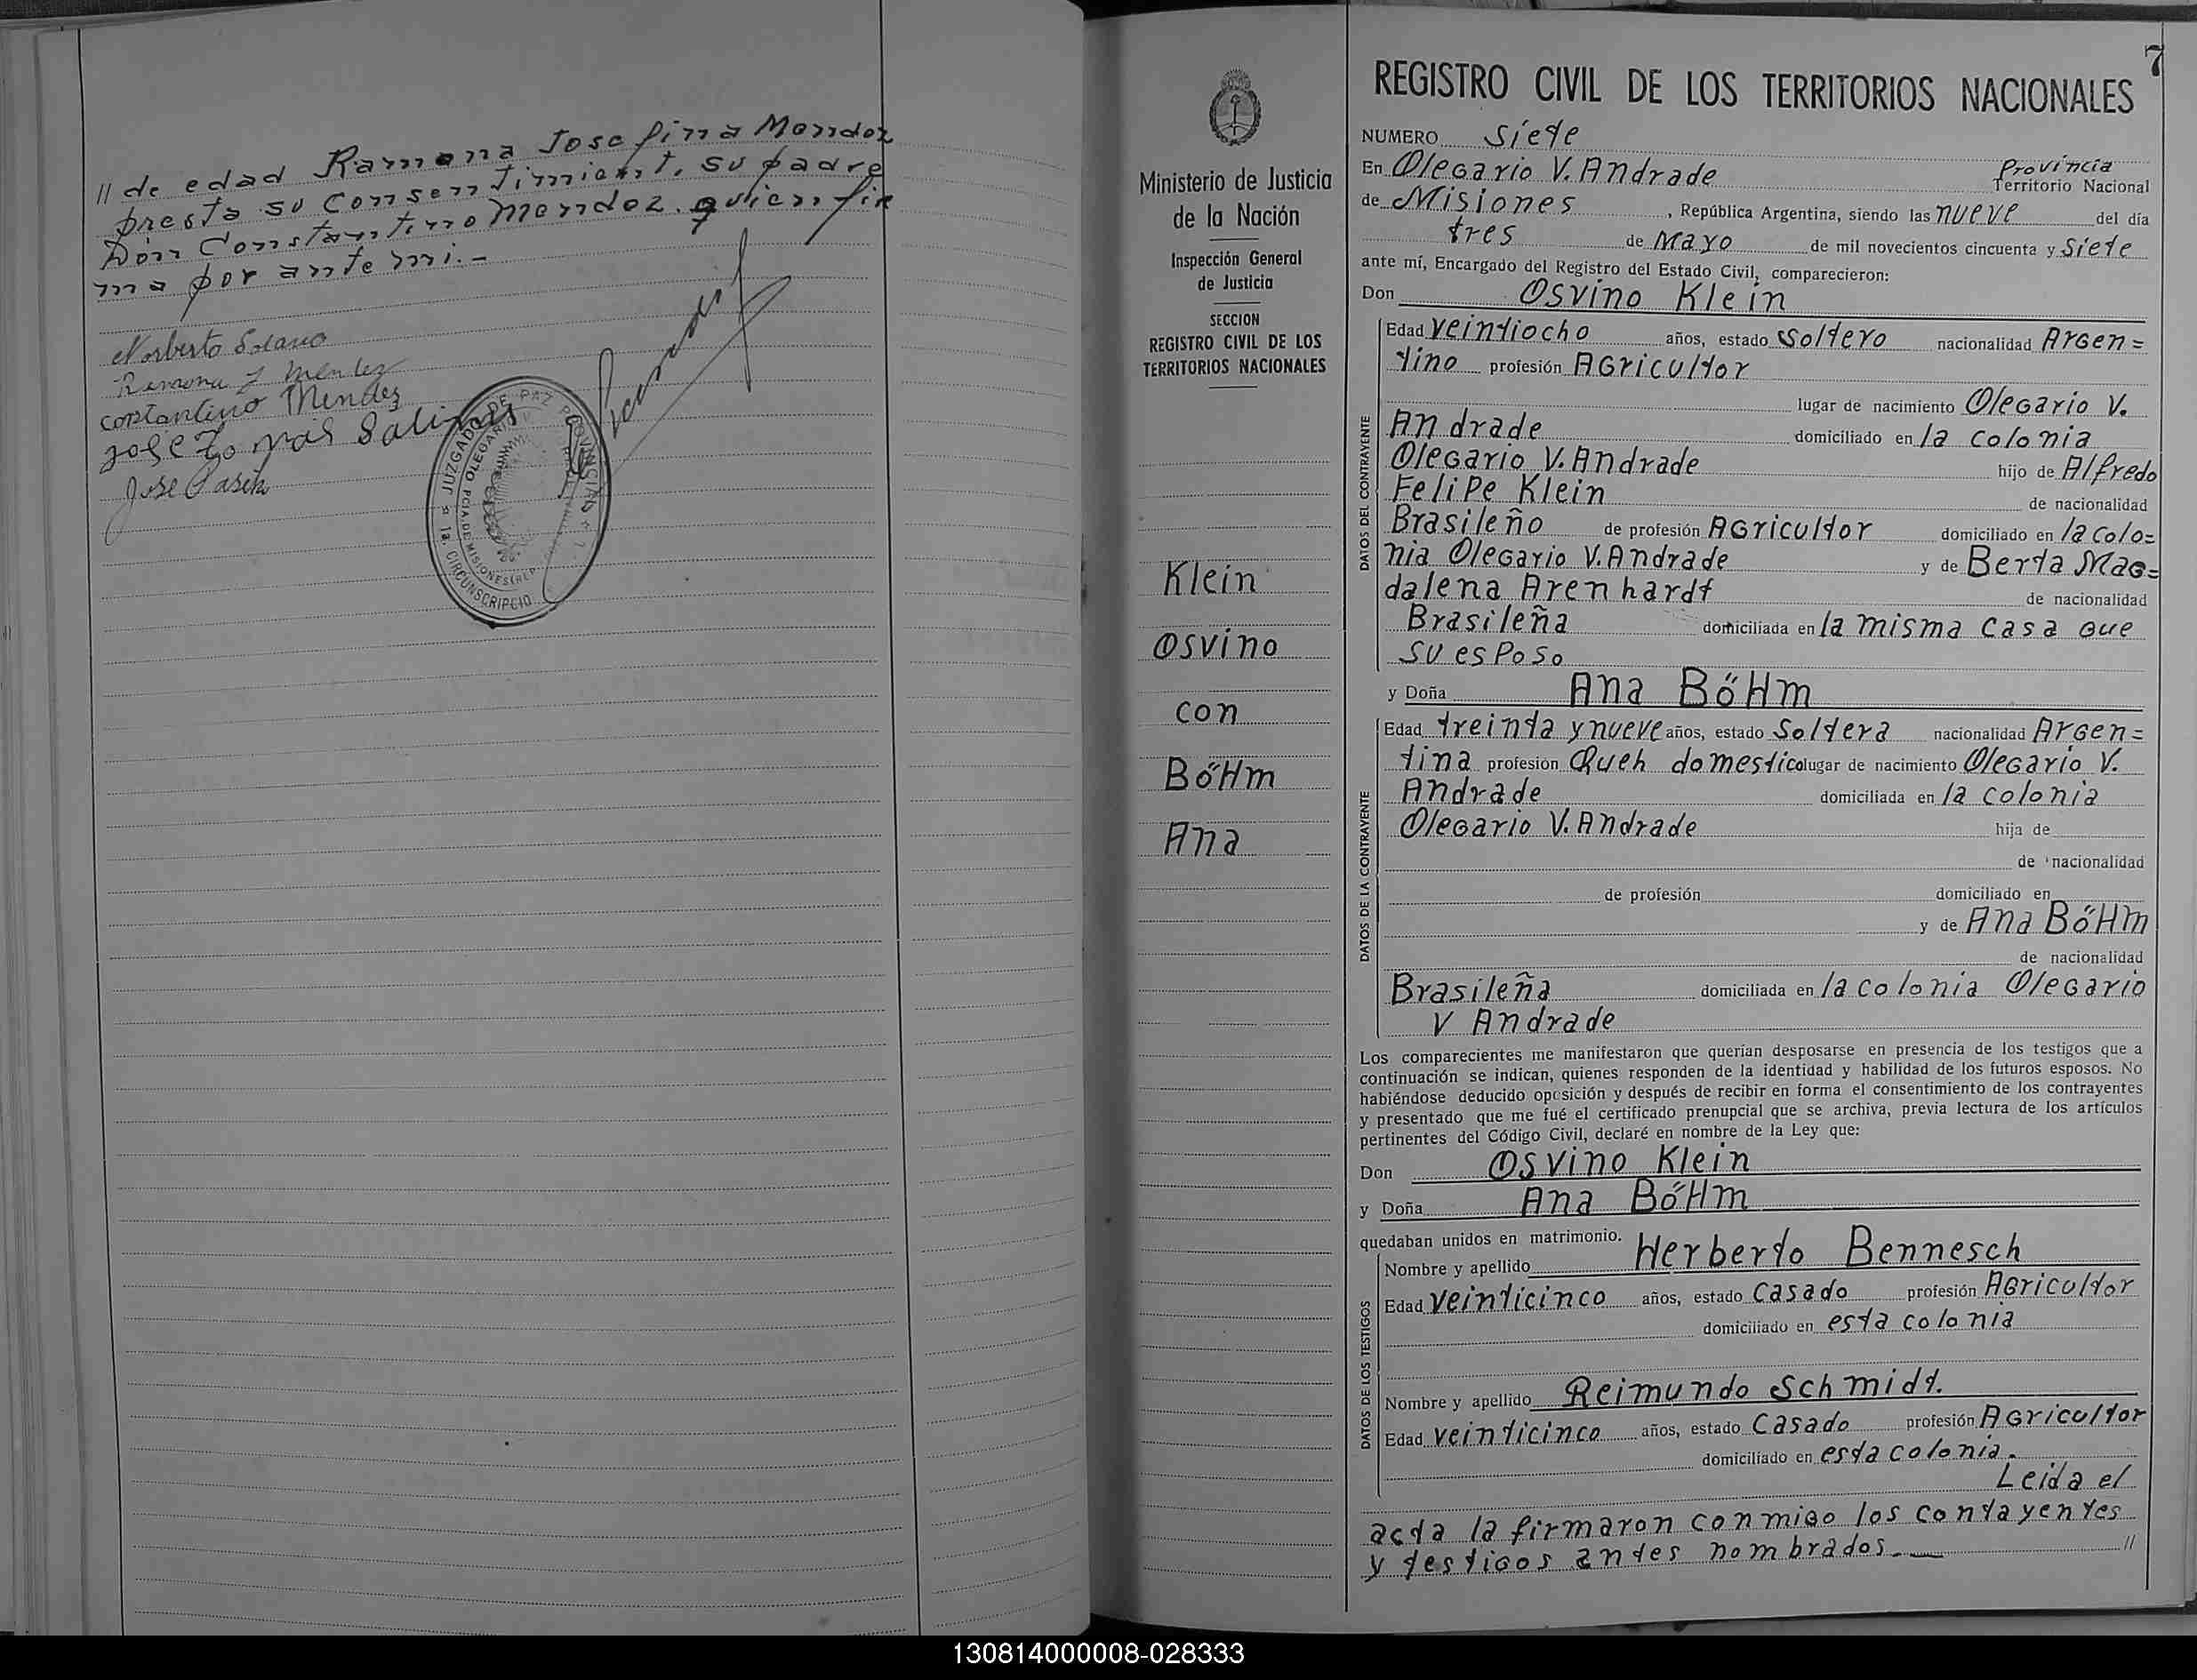 // de edad Ramona Josefina Mendez
presta su consentimient. su padre
Dón Constantino Mendez. quien fir
ma por ante mi.-
Norberto Solano
Ramona J Mendez
Constantino Mendez
José Tomás Salinas
José
JUZGADO DE PAZ PROVINCIAL
1a. CIRCUNSCRIPCIO
OLEGARIO V.
PCIA DE MISIONES (REP.
Ministerio de Justicia
de la Nación
Inspección General
de Justicia
SECCION
REGISTRO CIVIL DE LOS
TERRITORIOS NACIONALES
Klein
Osvino
con
BöHm
Ana
7
REGISTRO CIVIL DE LOS TERRITORIOS NACIONALES
NUMERO siete
En Olegario V. Andrade Provincia Territorio Nacional
de Misiones, República Argentina, siendo las nueve del día
tres de Mayo de mil novecientos cincuenta y Siete
ante mí, Encargado del Registro del Estado Civil, comparecieron:
Don Osvino Klein
DATOS DEL CONTRAYENTE
Edad veintiocho años, estado Soltero nacionalidad Argen=
tino profesión Agricultor
lugar de nacimiento Olegario V.
Andrade domiciliado en la colonia
Olegario V. Andrade hijo de Alfredo
Felipe Klein de nacionalidad
Brasileño de profesión Agricultor domiciliado en la colo=
nia Olegario V. Andrade y de Berta Mag=
dalena Arenhardt de nacionalidad
Brasileña domiciliada en la misma casa que
su esposo
y Doña Ana BöHm
DATOS DE LA CONTRAYENTE
Edad treinta y nueve años, estado Soltera nacionalidad Argen=
tina profesion Queh domestico lugar de nacimiento Olegario V.
Andrade domiciliada en la colonia
Olegario V. Andrade hija de
de nacionalidad
de profesión domiciliado en
y de Ana BöHm
de nacionalidad
Brasileña domiciliada en la colonia Olegario
V Andrade
Los comparecientes me manifestaron que querían desposarse en presencia de los testigos que a
continuación se indican, quienes responden de la identidad y habilidad de los futuros esposos. No
habiéndose deducido oposición y después de recibir en forma el consentimiento de los contrayentes
y presentado que me fué el certificado prenupcial que se archiva, previa lectura de los artículos
pertinentes del Código Civil, declaré en nombre de la Ley que:
Don Osvino Klein
y Doña Ana BöHm
quedaban unidos en matrimonio.
DATOS DE LOS TESTIGOS
Nombre y apellido Herberto Bennesch
Edad veinticinco años, estado Casado profesión Agricultor
domiciliado en esta colonia
Nombre y apellido Reimundo Schmidt.
Edad veinticinco años, estado Casado profesión Agricultor
domiciliado en esta colonia.
Leida el
acta la firmaron conmigo los contayentes
y testigos antes nombrados.— //
130814000008-028333